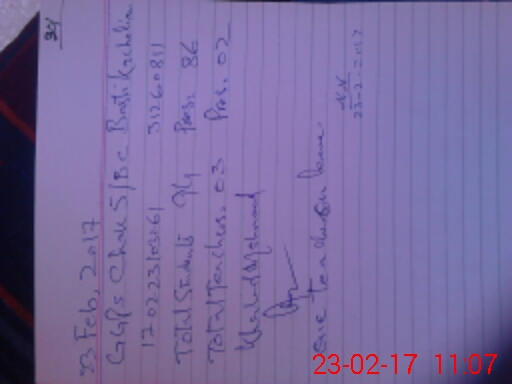 34
23 Feb, 2017
GGPS Chak 5/BC Basti Kacholia
17022310361 31260811
Total Students 94 Pres. 86
Total Teachers. 03 Pres. 02
Khalid Mahmood
one Teacher on leave
23-2-2017
23-02-17 11:07